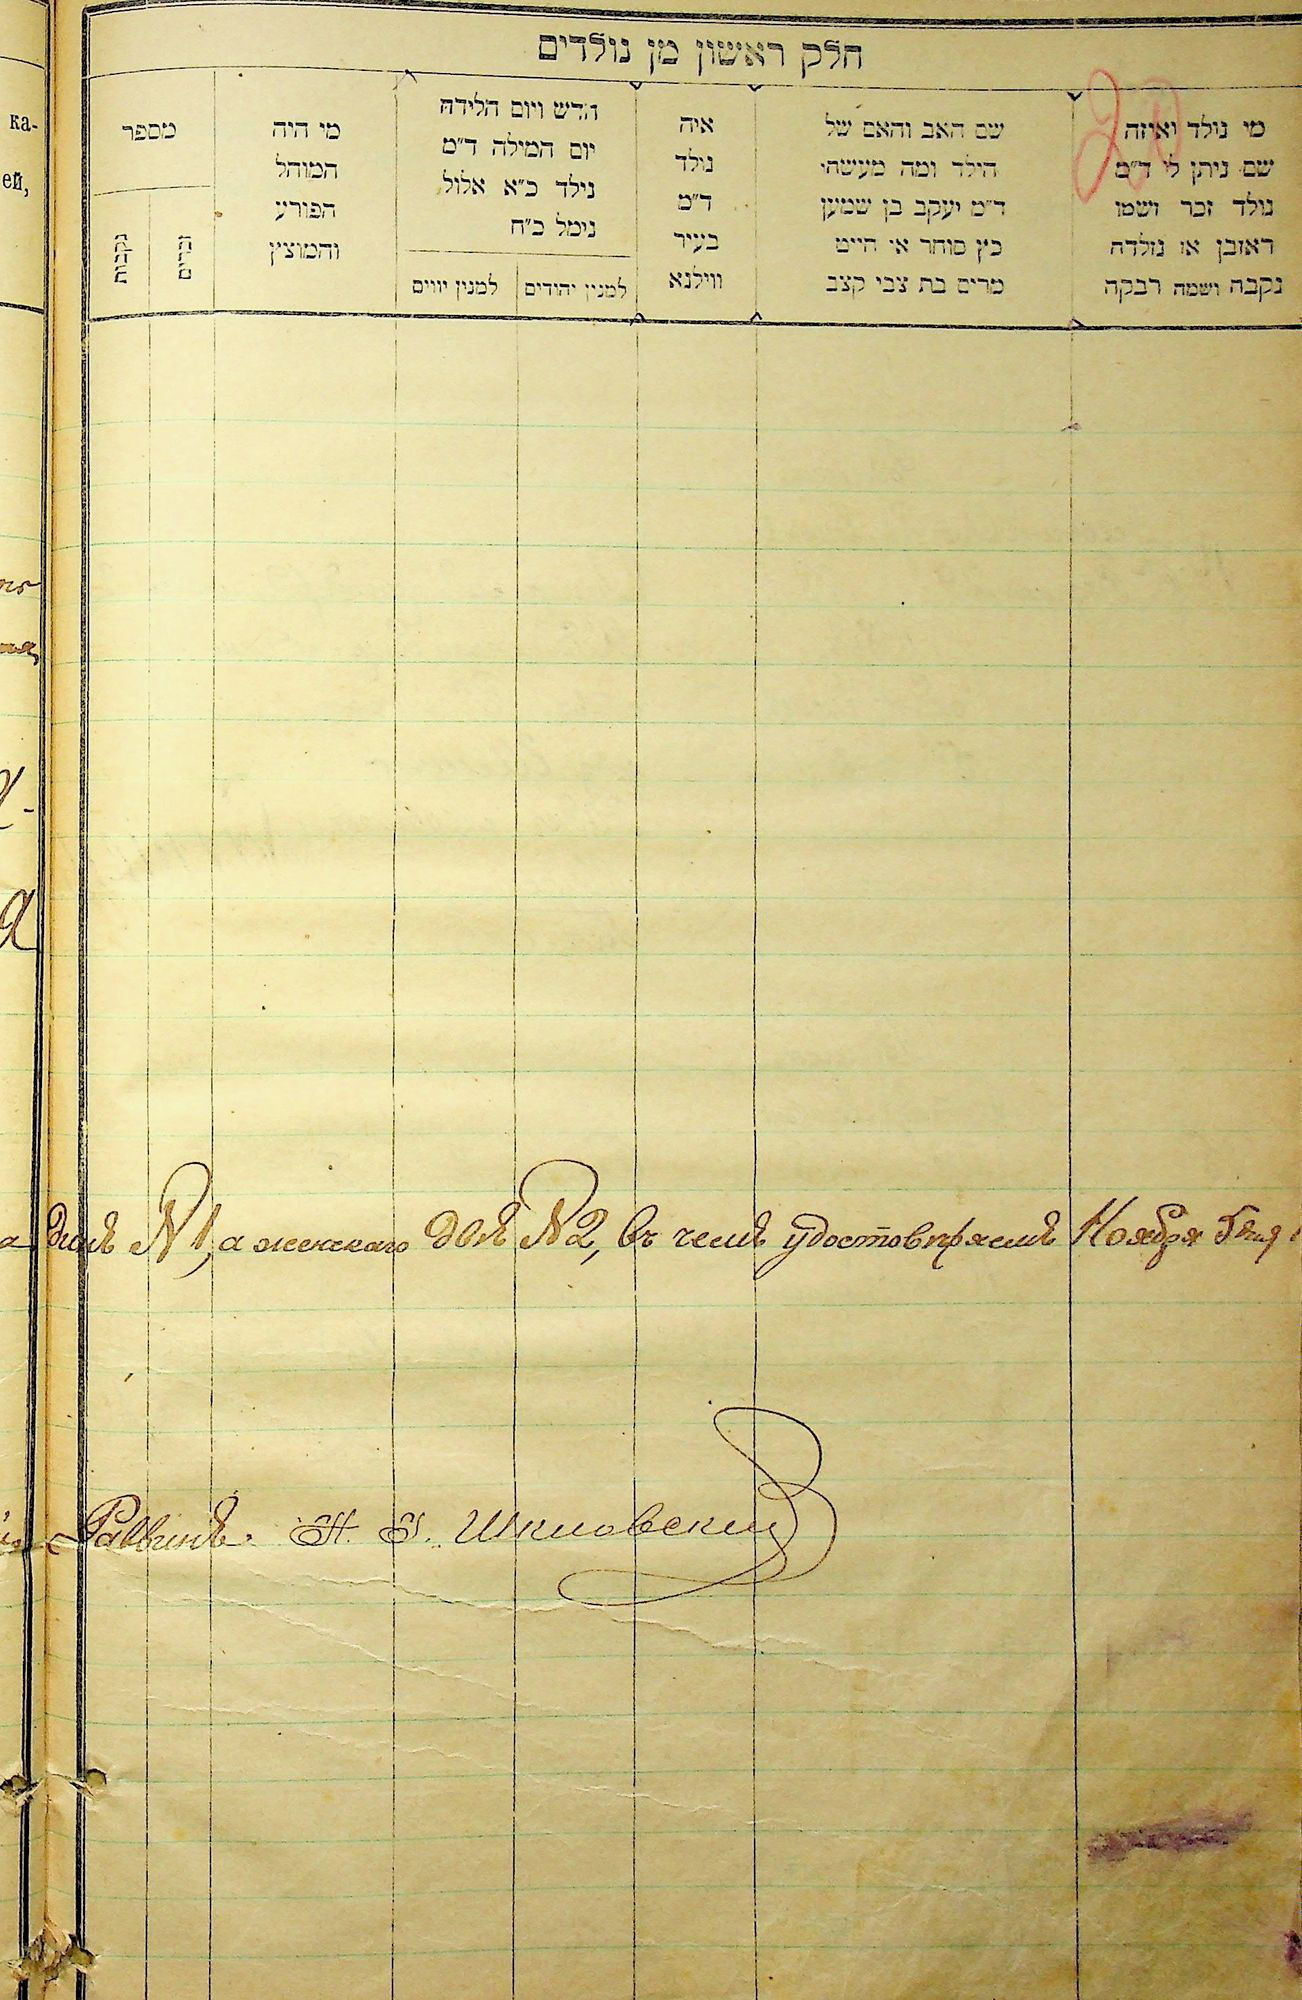 חלק ראשון מן נולדים
20
מי נולד ואיזה
שם ניתן לו ד״מ
נולד זכר ושמו
ראובן או נולדה
נקבה ושמה רבקה
שם האב והאם של
הילד ומה מעשהו
ד״מ יעקב בן שמעון
כץ סוחר או חייט
מרים בת צבי קצב
איה
נולד
ד״מ
בעיר
ווילנא
חדש ויום הלידה
יום המילה ד״מ
נולד כ״א אלול
נימל כ״ח
למנין יהודים
למנין יווים
מי היה
המוהל
הפורע
והמוצץ
מספר
זכרים
נקבות
ка-
ей,
№ 1, а женскаго № 2, въ чемъ удостовѣряемъ Ноября
Раввинъ Шкловскій